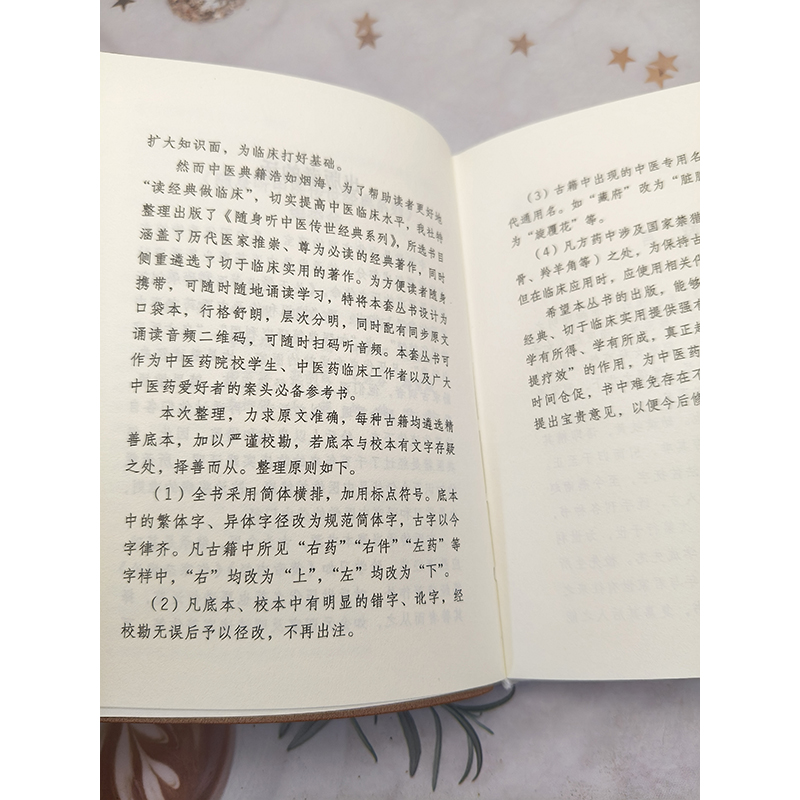 扩大知识面，为临床打好基础。
然而中医典籍浩如烟海，为了帮助读者更好地
“读经典做临床”，切实提高中医临床水平，我社特
整理出版了《随身听中医传世经典系列》，所选书目
涵盖了历代医家推崇、尊为必读的经典著作，同时
侧重遴选了切于临床实用的著作。为方便读者随身
携带，可随时随地诵读学习，特将本套丛书设计为
口袋本，行格舒朗，层次分明，同时配有同步原文
诵读音频二维码，可随时扫码听音频。本套丛书可
作为中医药院校学生、中医药临床工作者以及广大
中医药爱好者的案头必备参考书。
本次整理，力求原文准确，每种古籍均遴选精
善底本，加以严谨校勘，若底本与校本有文字存疑
之处，择善而从。整理原则如下。
（1）全书采用简体横排，加用标点符号。底本
中的繁体字、异体字径改为规范简体字，古字以今
字律齐。凡古籍中所见“右药”“右件”“左药”等
字样中，“右”均改为“上”，“左”均改为“下”。
（2）凡底本、校本中有明显的错字、讹字，经
校勘无误后予以径改，不再出注。
（3）古籍中出现的中医专用名
代通用名。如“藏府”改为“脏
为“旋覆花”等。
（4）凡方药中涉及国家禁猎
骨、羚羊角等）之处，为保持古
但在临床应用时，应使用相关代
希望本丛书的出版，能够
经典、切于临床实用提供强有
学有所得、学有所成，真正起
提疗效”的作用，为中医药
时间仓促，书中难免存在不
提出宝贵意见，以便今后修